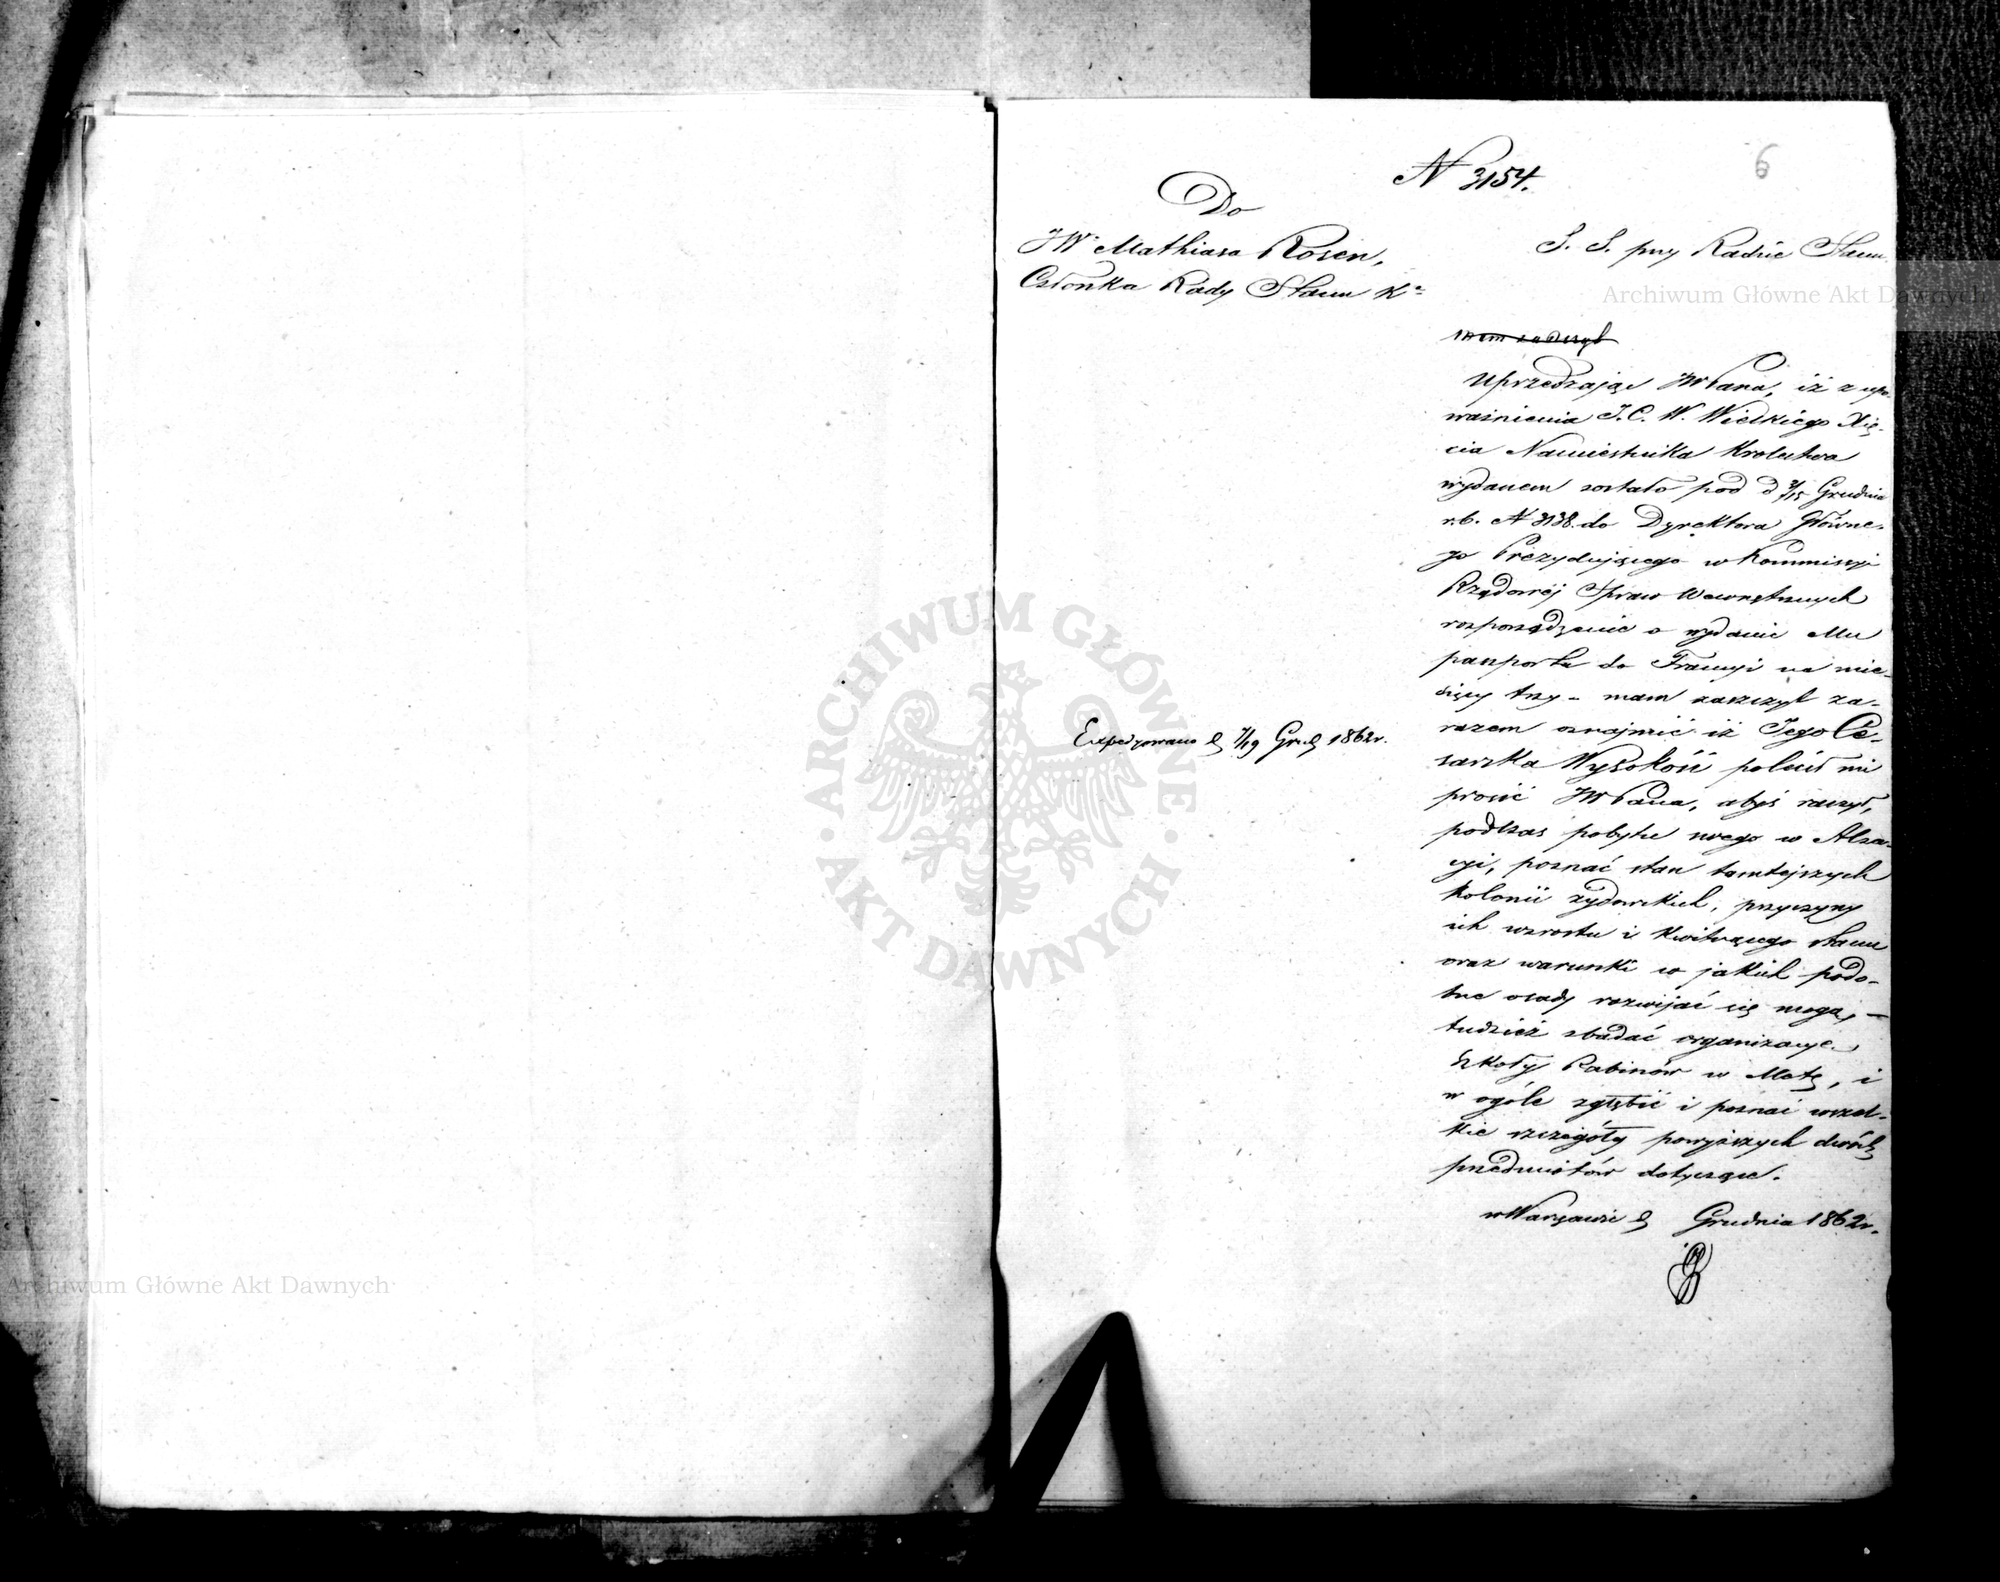 6
N 3154.
Do
JW. Mathiasa Rosen,
Członka Rady Stanu K.
S. S. przy Radzie Stanu
mam zaszczyt
Uprzedzając JWPana, iż z upo-
ważnienia J. C. W. Wielkiego Xię-
cia Namiestnika Królestwa
wydanem zostało pod d. 3/15 Grudnia
r.b. N 3138. do Dyrektora Główne-
go Prezydującego w Kommissyi
Rządowéj Spraw Wewnętrznych
rozporządzenie o wydanie Mu
paszportu do Francyi na mie-
sięcy trzy - mam zaszczyt za-
razem oznajmić iż Jego Ce-
sarska Wysokość polecił mi
prosić JWPana, abyś raczył,
podczas pobytu swego w Alza-
cyi, poznać stan tamtejszych
kolonii żydowskich, przyczyny
ich wzrostu i kwitnącego stanu
oraz warunki w jakich podo-
bne osady rozwijać się mogą, -
tudzież zbadać organizacye
Szkoły Rabinów w Metz, i
w ogóle zgłębić i poznać wszel-
kie szczegóły powyższych dwóch
przedmiotów dotyczące.
w Warszawie d. Grudnia 1862 r.
Expedyowano d. 7/19 Grud. 1862 r.
ARCHIWUM GŁÓWNE
AKT DAWNYCH
Archiwum Główne Akt Dawnych
Archiwum Główne Akt Dawnych